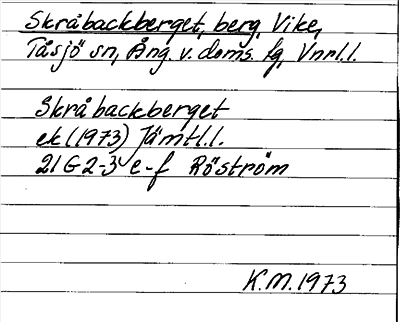 Skråbackberget, berg, Vike,
Tåsjö sn, Ång. v. doms. fg, Vnrl.l.
Skråbackberget
ek (1973) Jämtl.l.
21 G 2-3 e-f Röström
K.M. 1973